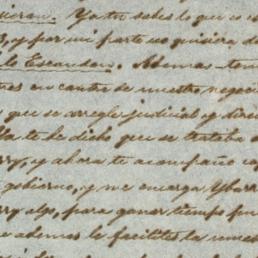 quieran. Ya tu sabes lo que es
y por mi parte no quisiera
lo Escandon. Ademas
en contra de nuestro negocio
que se arregle judicial y
te he dicho que se trataba de
y ahora te acompaño
gobierno, y me encarga Ybar
algo, para ganar tiempo
ademas le facilites la